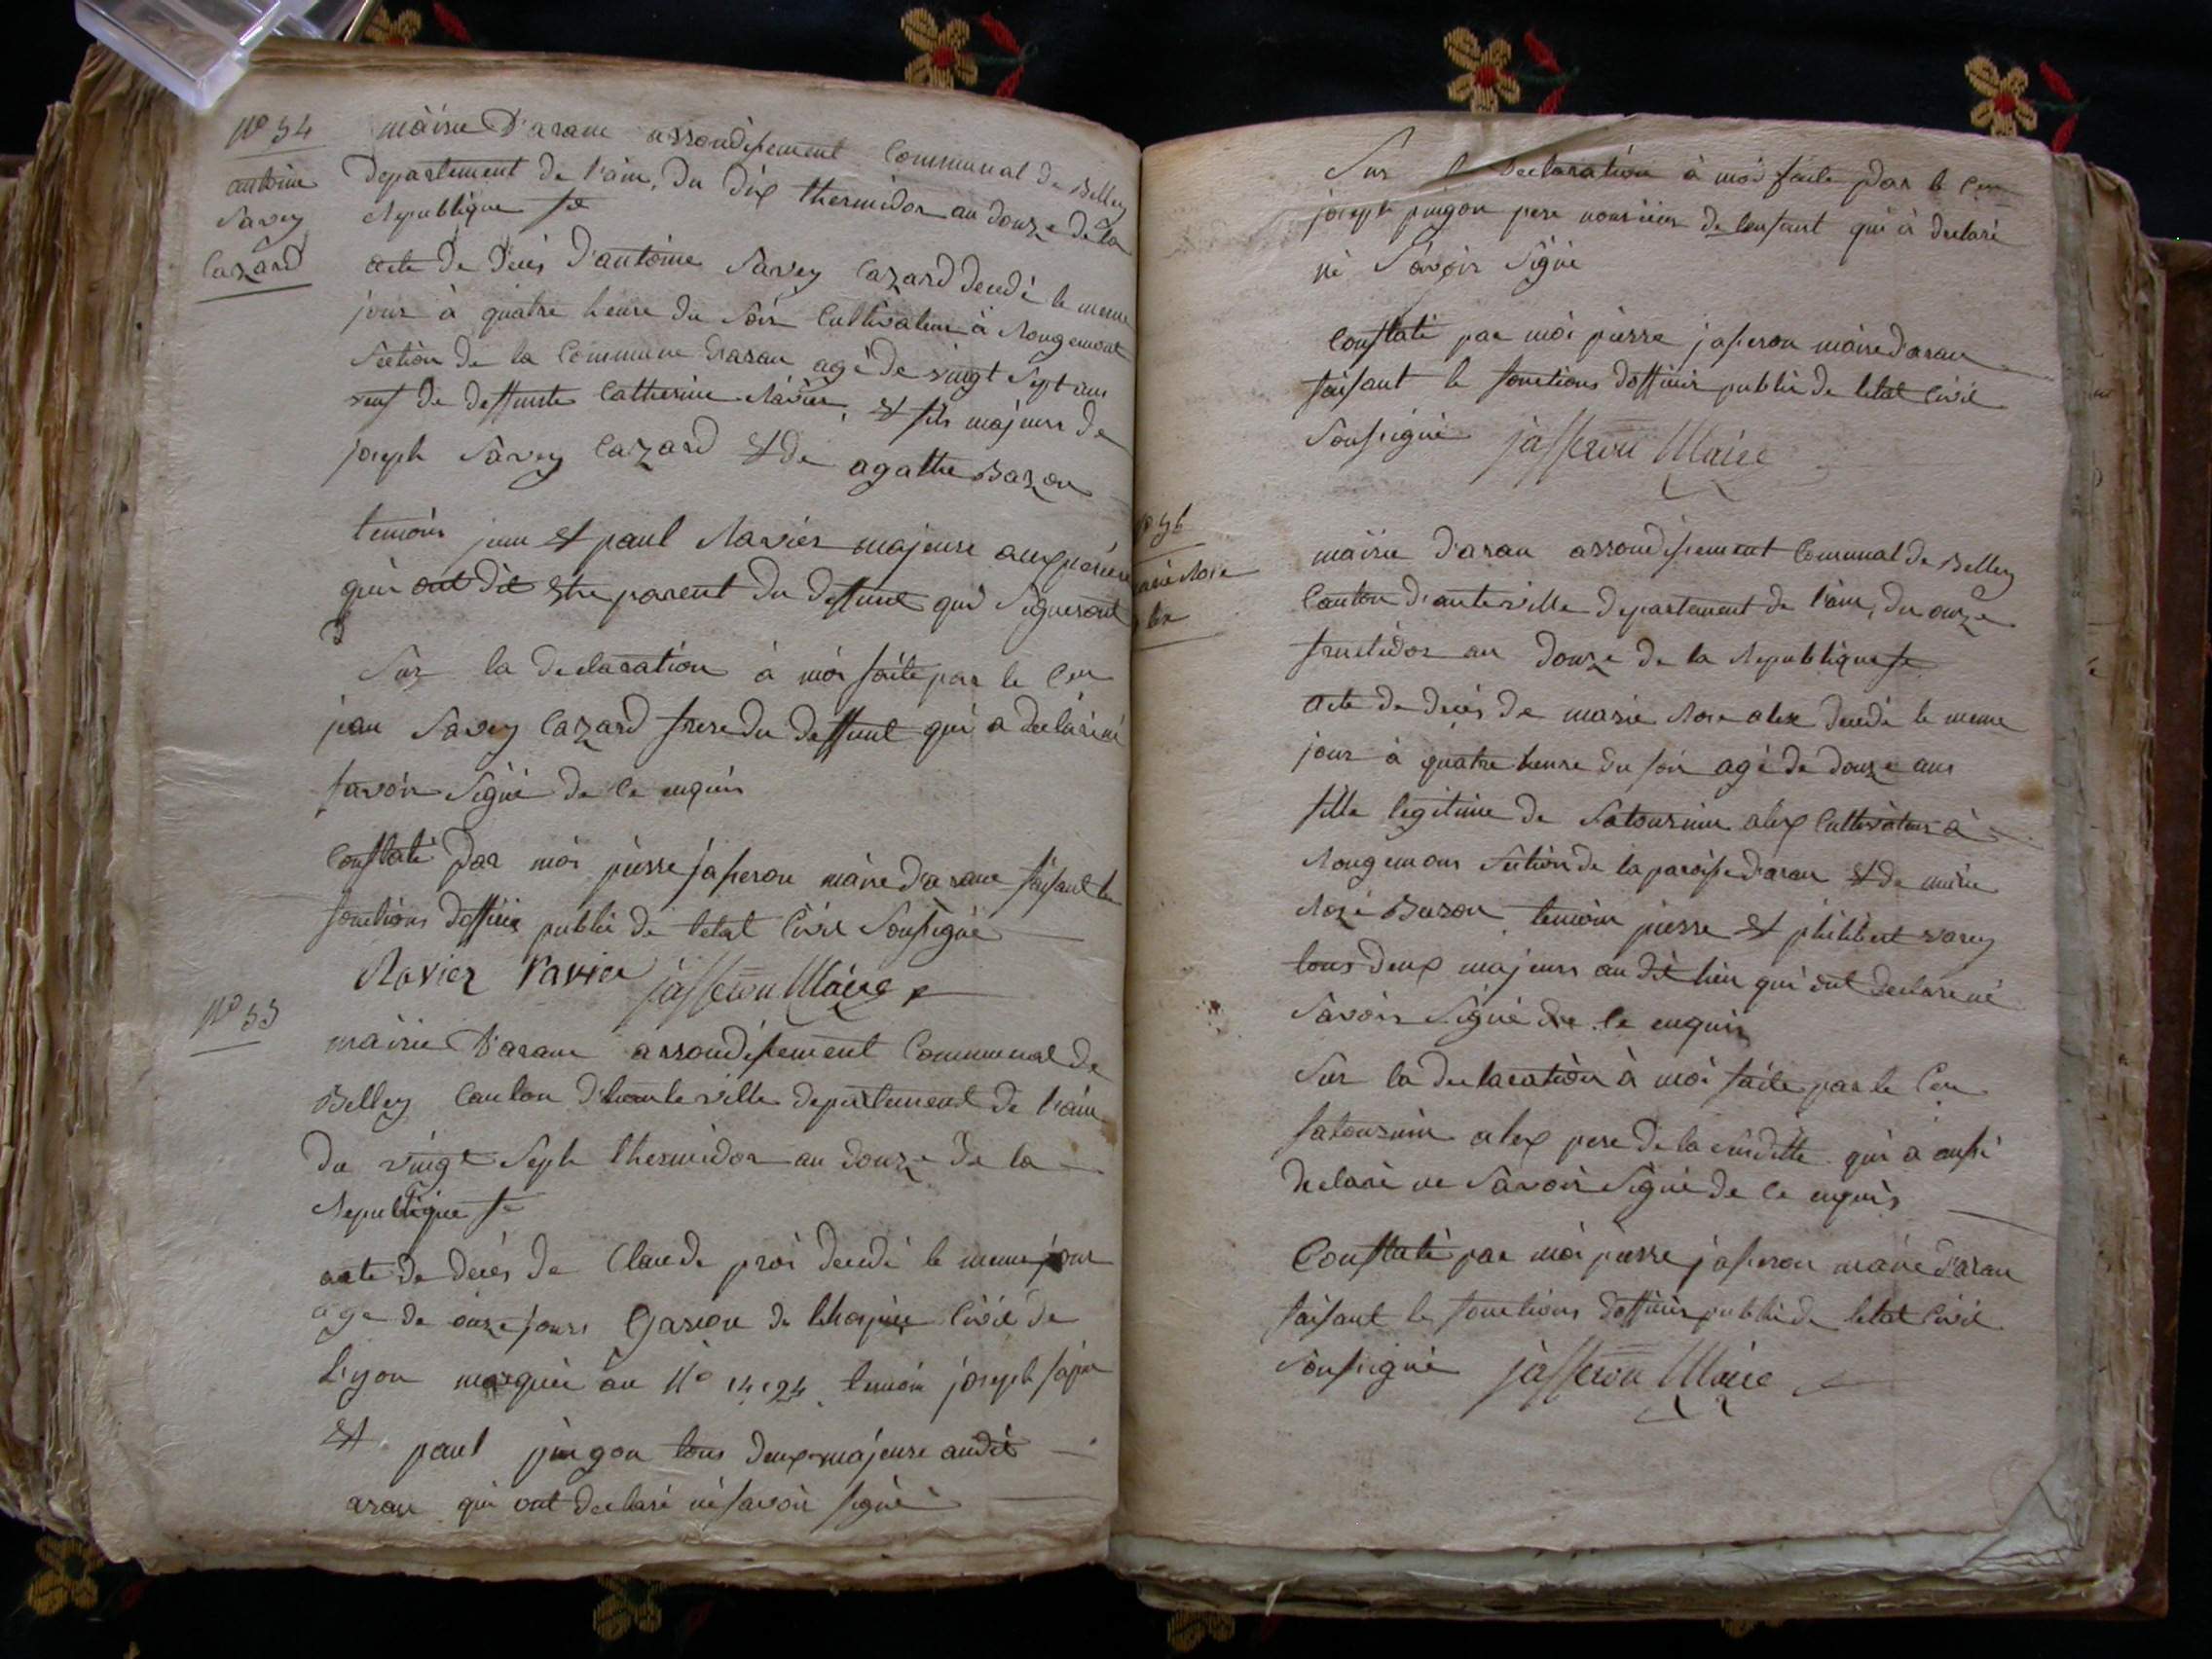 N° 54
antoine
Savey
Cazard
mairie D'aranc arrondissement Communal de Belley
Departement de l'ain, Du Dix thermidor an douze de la
Republique fse
acte De Décés D'antoine Savey Cazard decedé le meme
jour à quatre heure du Soir Cultivateur à Rougemont
Section de la Commune d'aran agé De vingt Sept ans
veuf de deffunte Catherine Ravier, et fils majeur de
joseph Savey Cazard et de agathe Bozon
temoin jean et paul Ravier majeure
qui ont dit etre parent du deffunt qui Signeront
Sur la declaration à moi faite par le Cen
jean Savey Cazard frere du deffunt qui a declaré né
Savoir Signé de ce enquis
Constaté par moi pierre jasseron maire d'aranc faisant les
fonctions dofficie public de l'etat Civil Soussigné
Ravier Ravier jasseron Maire
N° 55
mairie D'aranc arrondissement Communal de
Belley Canton D'hauteville departement de l'ain
du vingt Sept thermidor an douze de la
Republique fse
acte de decés de Claude proi decedé le meme jour
age de onze jours Garson de l'hospice Civil de
Lyon marquée au N° 1424. temoin joseph
et paul pingon tous deux majeure audit
aran qui ont declaré né savoir signé
Sur la Declaration à moi faite par le Cen
joseph pingon pere nourricier de lenfant qui à declaré
né Savoir Signé
Constaté par moi pierre jasseron maire d'aran
faisant le fonctions dofficier public de letat Civil
Soussigné jasseron Maire
N° 56
marie Rose
alex
mairie d'aran arrondissement Communal de Belley
Canton d'auteville departement de l'ain, du onze
fructidor an douze de la Republique fse
acte de decés de marie Rose alex decedé le meme
jour à quatre heure du soir agé de douze ans
fille legitime de Satournin alex Cultivateur à
Rougemons Section de la paroisse d'aran et de marie
Rose Bozon temoin pierre et philibert savey
tous deux majeurs au dit lieu qui ont declare né
Savoir Signé de ce enquis
Sur la declaration à moi faite par le Cen
Satournin alex pere de la susditte qui à aussi
declaré ne Savoir Signé de ce enquis
Constaté par moi pierre jasseron maire d'aran
faisant le fonctions dofficier public de letat Civil
Soussigné jasseron Maire